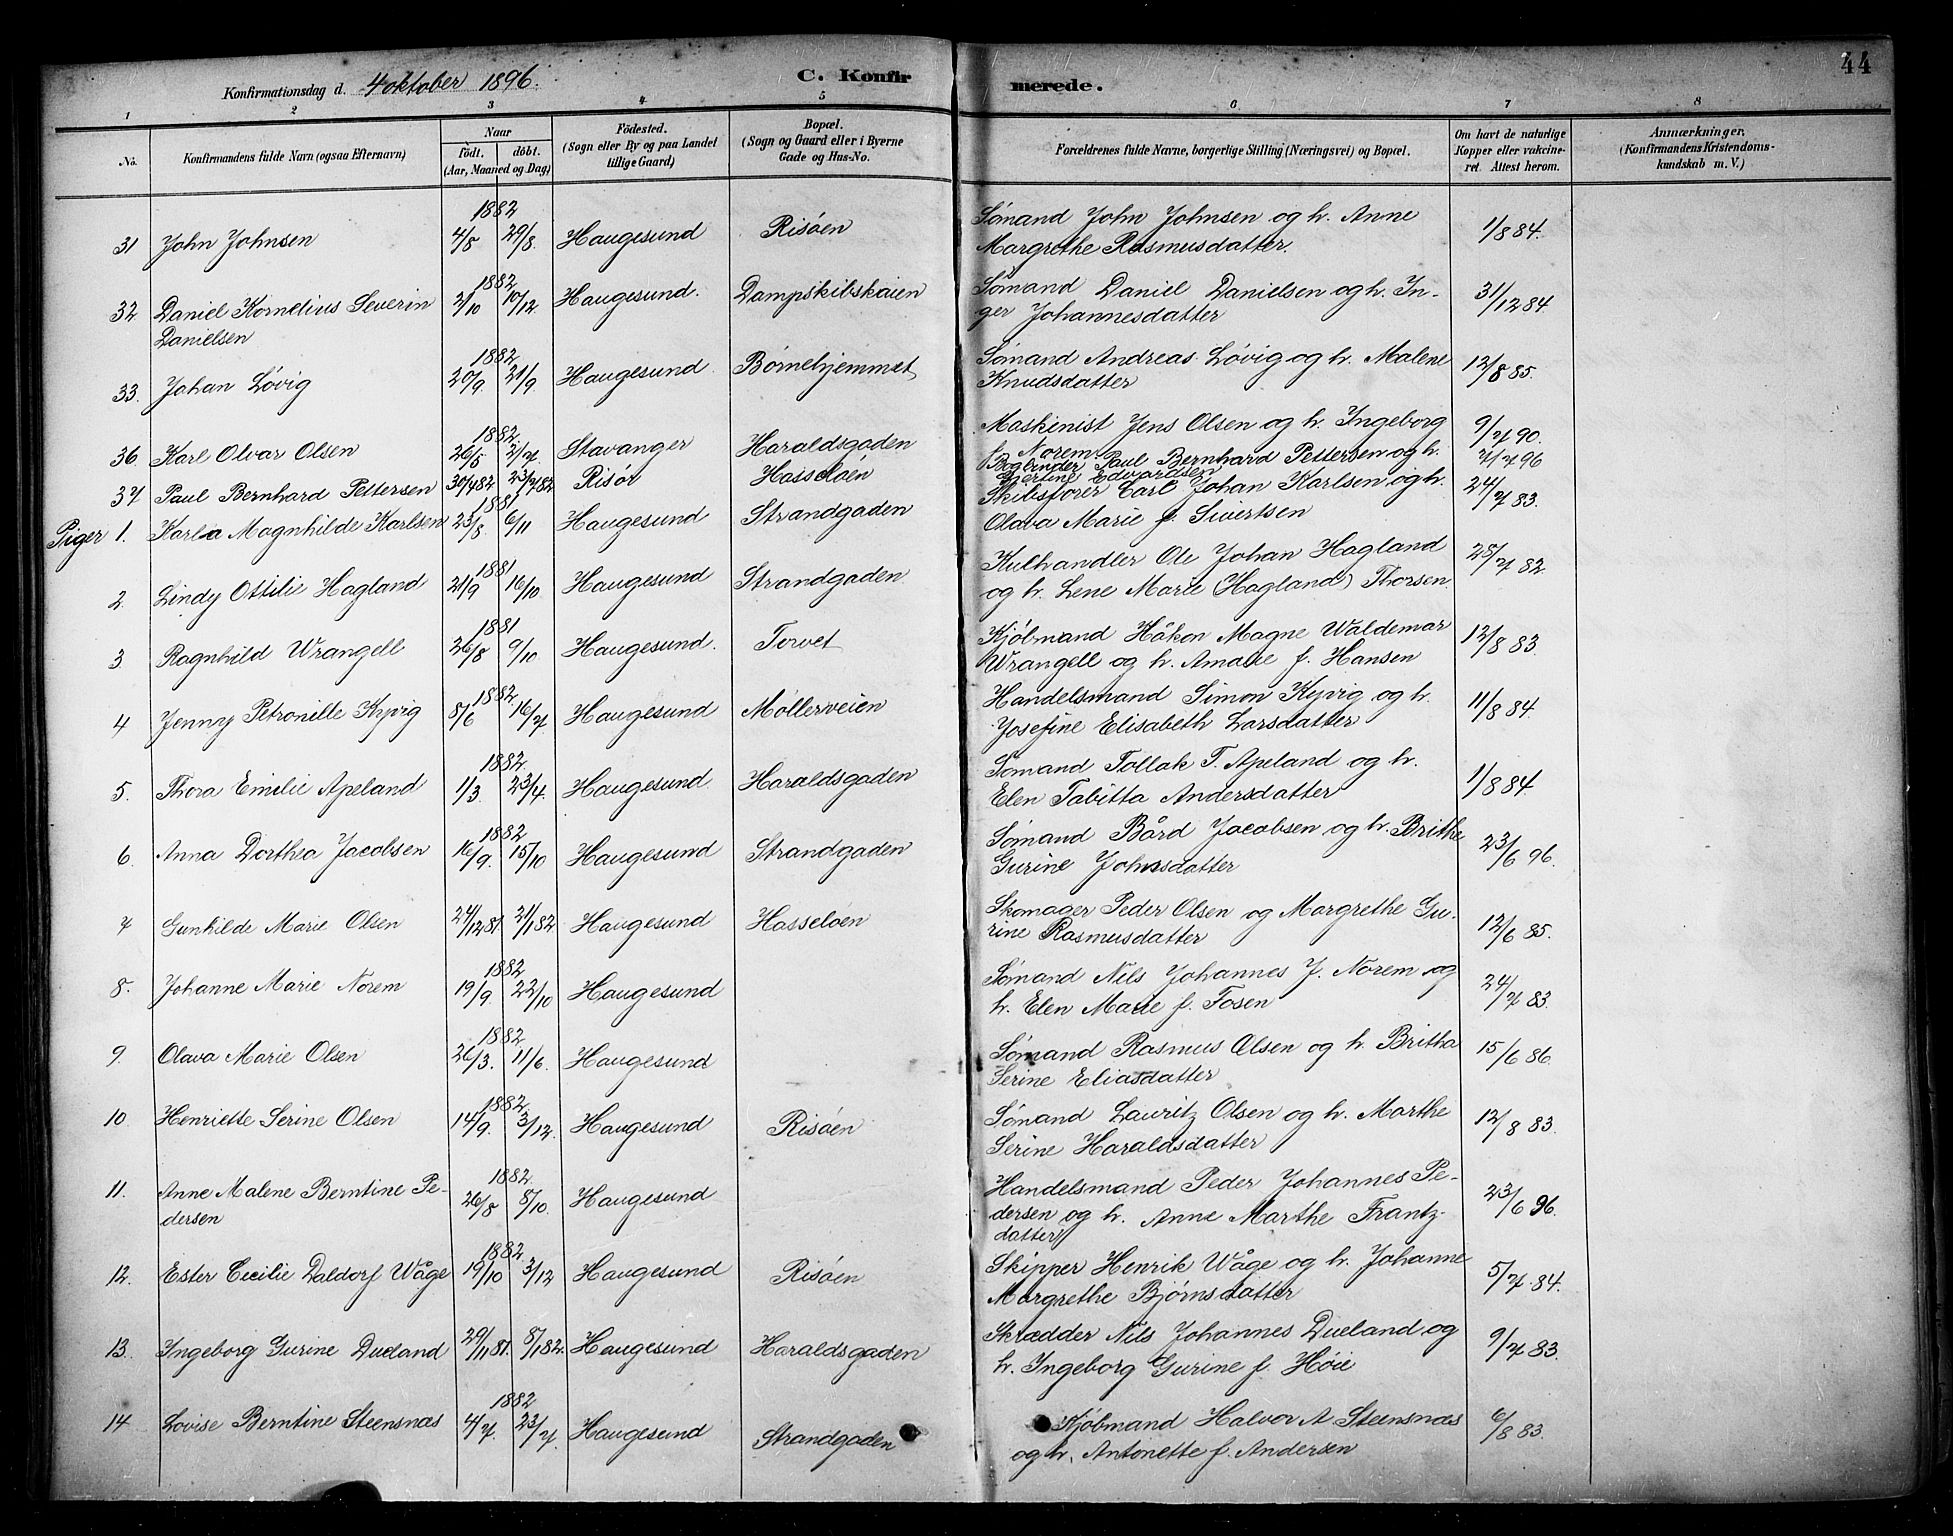 44
Konfirmationsdag d. 4 oktober 1896. C. Konfirmerede.
1 2 3 4 5 6 7 8
No. Konfirmandens fulde Navn (ogsaa Efternavn) Naar födt. döbt. (Aar, Maaned og Dag) Födested. (Sogn eller By og paa Landet tillige Gaard) Bopæl. (Sogn og Gaard eller i Byerne Gade og Hus-No. Forældrenes fulde Navne, borgerlige Stilling (Næringsvei) og Bopæl. Om havt de naturlige Kopper eller vakcineret. Attest herom. Anmærkninger. (Konfirmandens Kristendomskundskab m. V.)
1882
31 John Johnsen 4/8 29/8. Haugesund Risøen Sømand John Johnsen og h. Anne 1/8 84.
Margrethe Rasmusdatter.
1882
32. Daniel Kornelius Severin 2/10 10/12. Haugesund. Dampskibskaien Sømand Daniel Danielsen og h. In- 31/12 84.
Danielsen ger Johannesdatter
1882
33. Johan Løvig 20/9. 21/9 Haugesund Børnehjemmet Sømand Andreas Løvig og h. Malene 12/8 85.
Knudsdatter
1882.
36. Karl Olvar Olsen 26/5 2/7. Stavanger Haraldsgaden Maskinist Jens Olsen og h. Ingeborg 9/7 90.
f. Norem.
37 Paul Bernhard Pettersen 30/4 82 23/7 82 Risør Hasseløen Bogbinder Paul Bernhard Pettersen og h. 21/7 96
Bertine Edvardsen
1881
Piger 1. Karla Magnhilde Karlsen 23/8 6/11 Haugesund Strandgaden Skibsfører Carl Johan Karlsen og h. 24/7 83.
Olava Marie f. Sivertsen
1881
2. Lindy Ottilie Hagland 21/9 16/10 Haugesund Strandgaden Kulhandler Ole Johan Hagland 25/7 82
og h. Lene Marie (Hagland) Thorsen
1881
3 Ragnhild Wrangell 26/8 9/10 Haugesund. Torvet Kjøbmand Håkon Magne Waldemar 12/8 83.
Wrangell og h. Amalie f. Hansen
1882.
4 Jenny Petronille Kyvig 8/6 16/7 Haugesund Møllerveien Handelsmand Simon Kyvig og h. 11/8 84.
Josefine Elisabeth Larsdatter
1882.
5. Thora Emilie Apeland 1/3. 23/4. Haugesund Haraldsgaden Sømand Tollak T. Apeland og h. 1/8 84
Elen Tabitta Andersdatter
1882
6. Anna Dorthea Jacobsen 16/9. 15/10 Haugesund Strandgaden Sømand Bård Jacobsen og h. Brithe 23/6 96.
Gurine Johnsdatter
7 Gunhilde Marie Olsen 24/12 81. 21/1 82 Haugesund Hasseløen Skomager Peder Olsen og Margrethe Gu- 12/6 85.
rine Rasmusdatter
1882
8. Johanne Marie Norem 19/9. 22/10 Haugesund Sømand Nils Johannes J. Norem og 24/7 83.
h. Elen Marie f. Fosen
1882
9. Olava Marie Olsen 26/3. 11/6. Haugesund Sømand Rasmus Olsen og h. Britha 15/6 86.
Serine Eliasdatter
1882.
10 Henriette Serine Olsen 14/9. 3/12. Haugesund Risøen Sømand Lauritz Olsen og h. Marthe 12/8 83.
Serine Haraldsdatter
1882.
11. Anne Malene Berntine Pe- 26/8 8/10. Haugesund Handelsmand Peder Johannes Pe- 23/6 96.
dersen dersen og h. Anne Marthe Frantz-
datter
1882.
12. Ester Cecilie Daldorf Wåge 19/10 3/12 Haugesund Risøen Skipper Henrik Wåge og h. Johanne 5/7 84.
Margrethe Bjørnsdatter
13. Ingeborg Gurine Dueland 29/11 81. 8/1 82. Haugesund Haraldsgaden Skrædder Nils Johannes Dueland og 9/7 83.
h. Ingeborg Gurine f. Høie
1882
14 Lovise Berntine Steensnæs 4/7. 23/7. Haugesund Strandgaden Kjøbmand Halvor A Steensnæs 6/8 83.
og h. Antonette f. Andersen